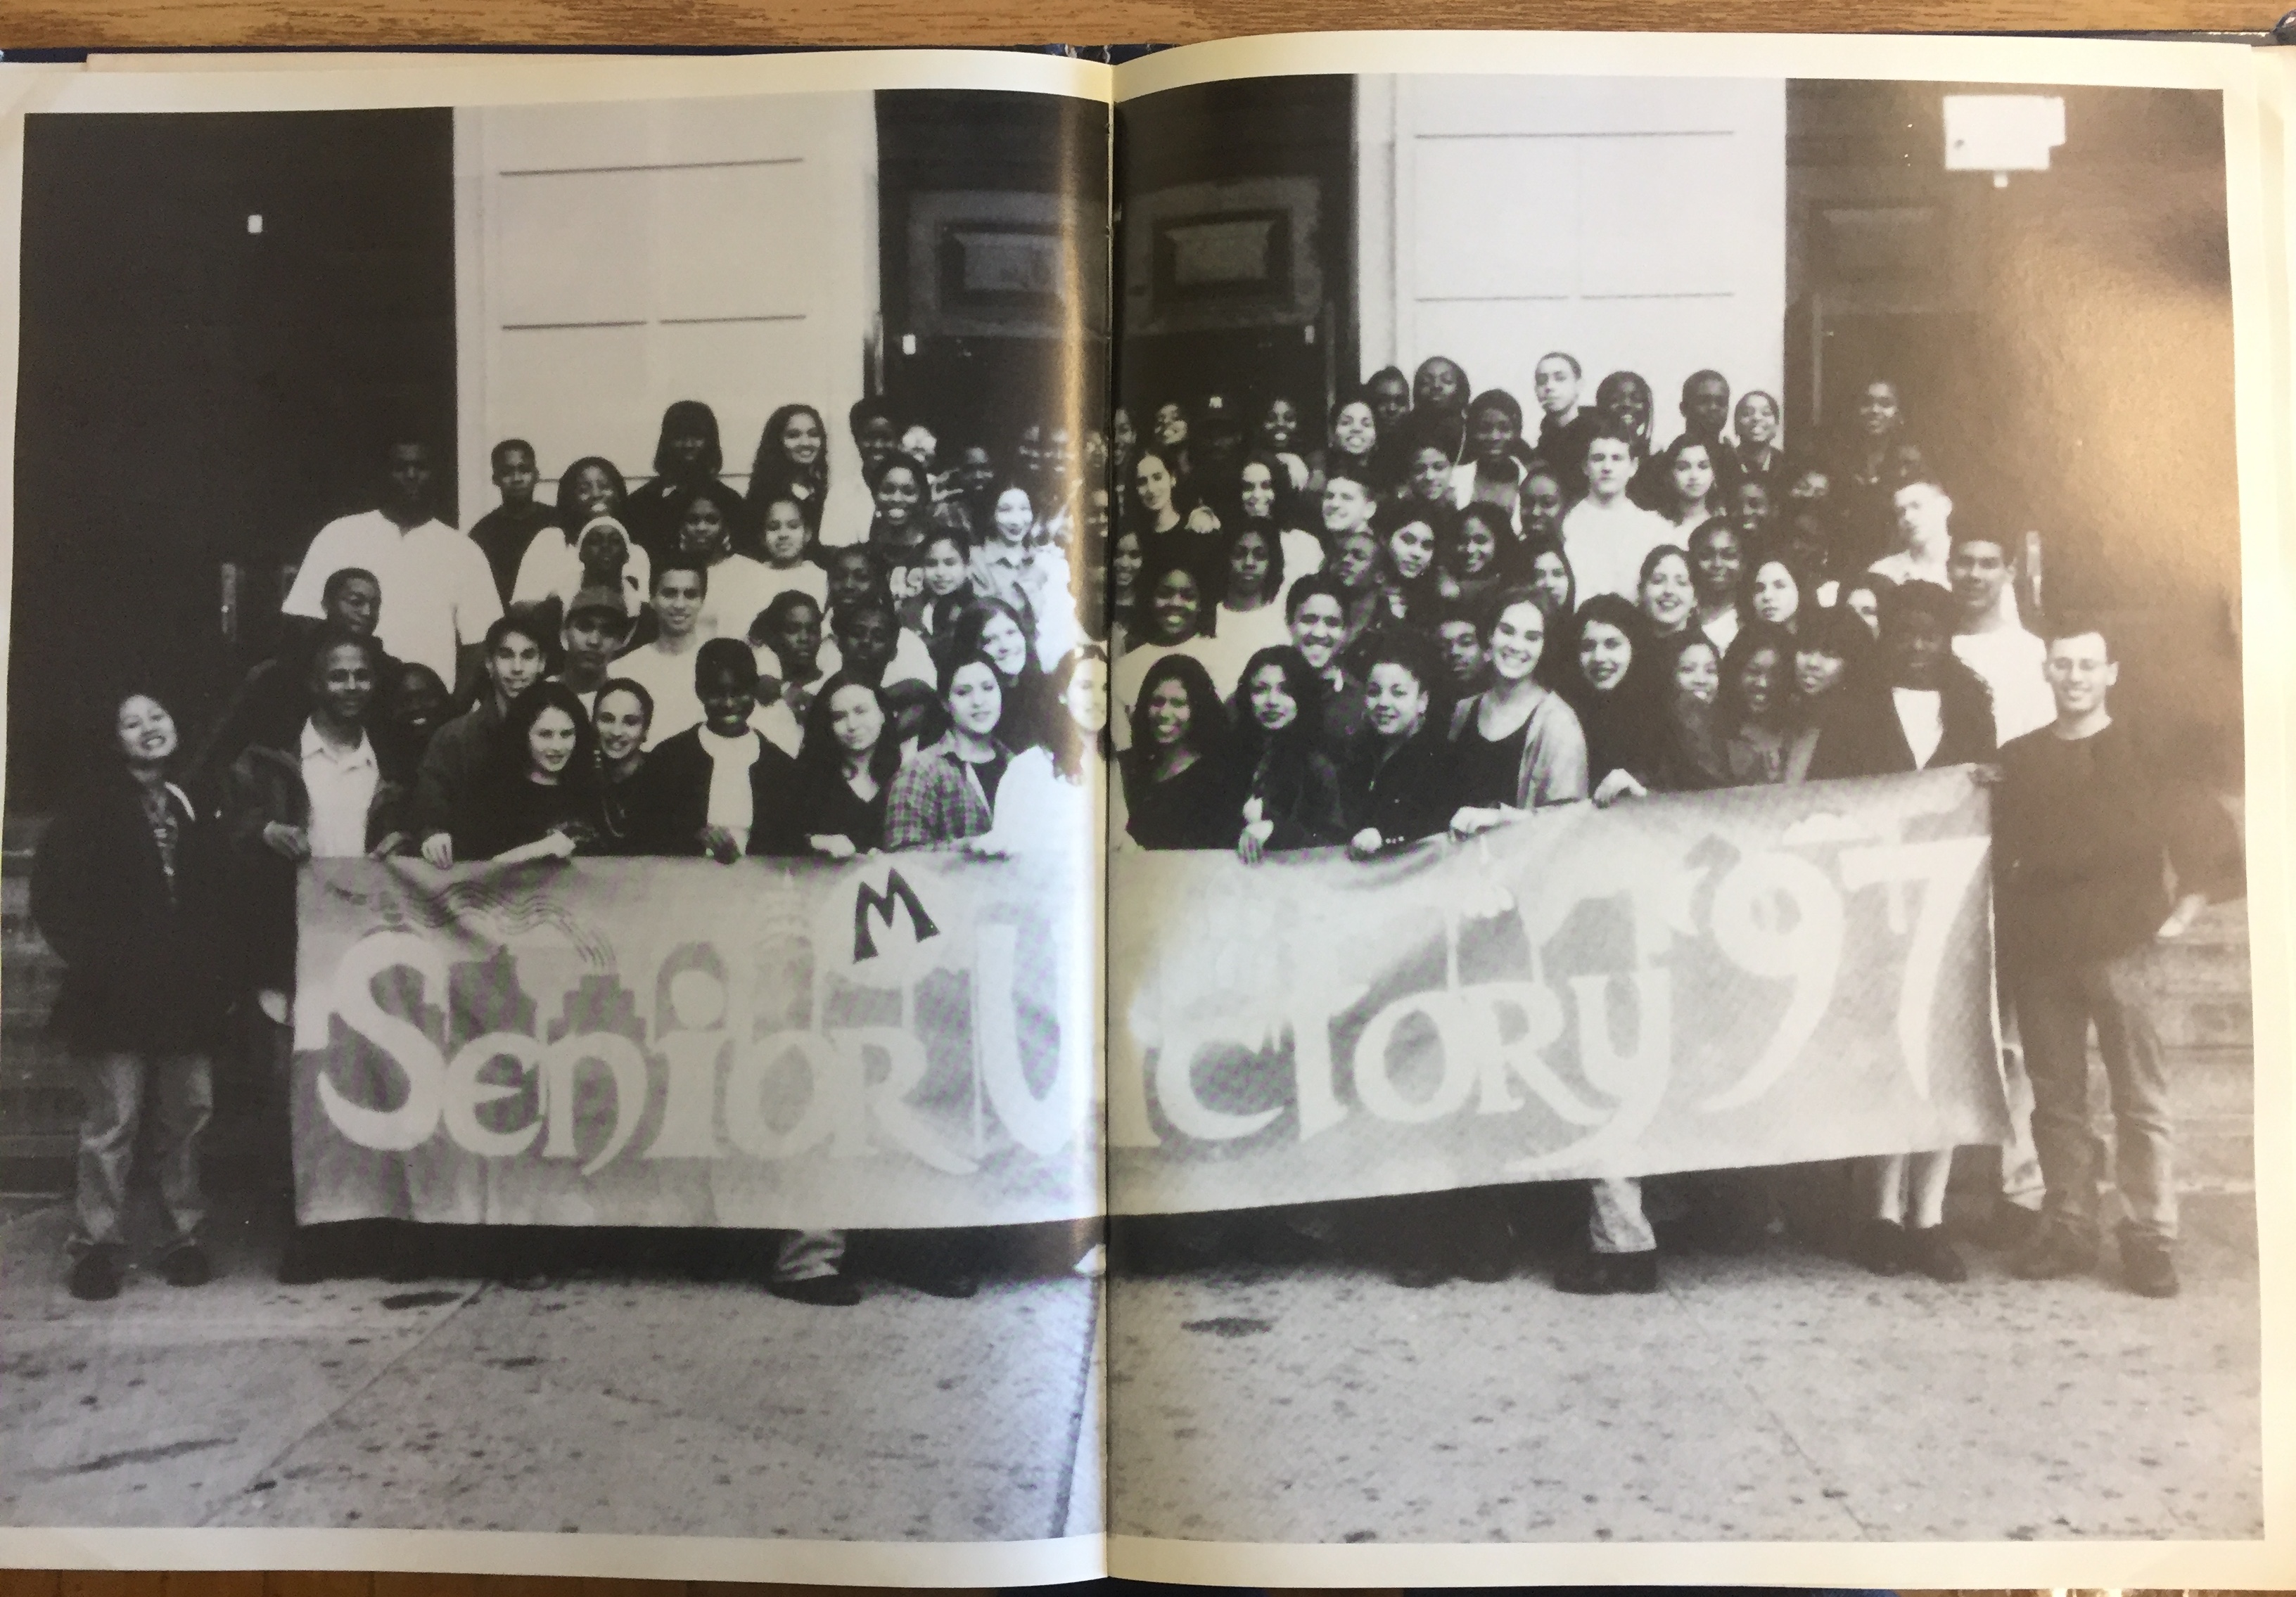 M
Senior Victory '97